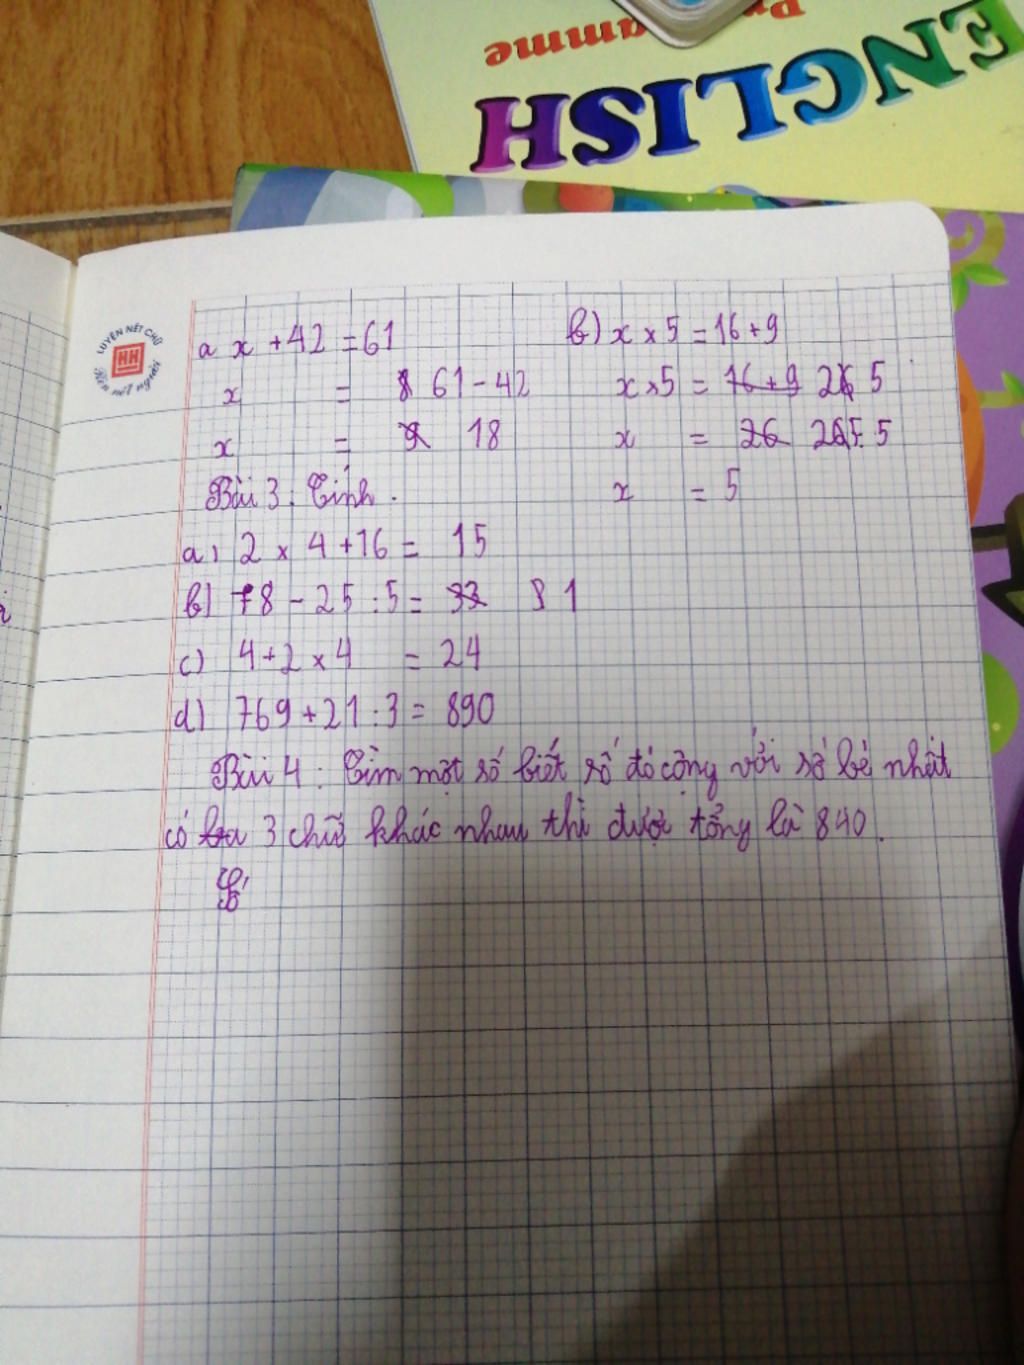 Programme
ENGLISH
LUYỆN NÉT CHỮ
HH
Rèn nết người
a x + 42 = 61
x = 61 - 42
x = 18
b) x x 5 = 16 + 9
x x 5 = 16 + 9 25
x = 26 25 : 5
x = 5
Bài 3 : Tính .
a) 2 x 4 + 16 = 15
b) 78 - 25 : 5 = 33 81
c) 4 + 2 x 4 = 24
d) 769 + 21 : 3 = 890
Bài 4 : Tìm một số biết số đó cộng với số bé nhất
có ba 3 chữ khác nhau thì được tổng là 840.